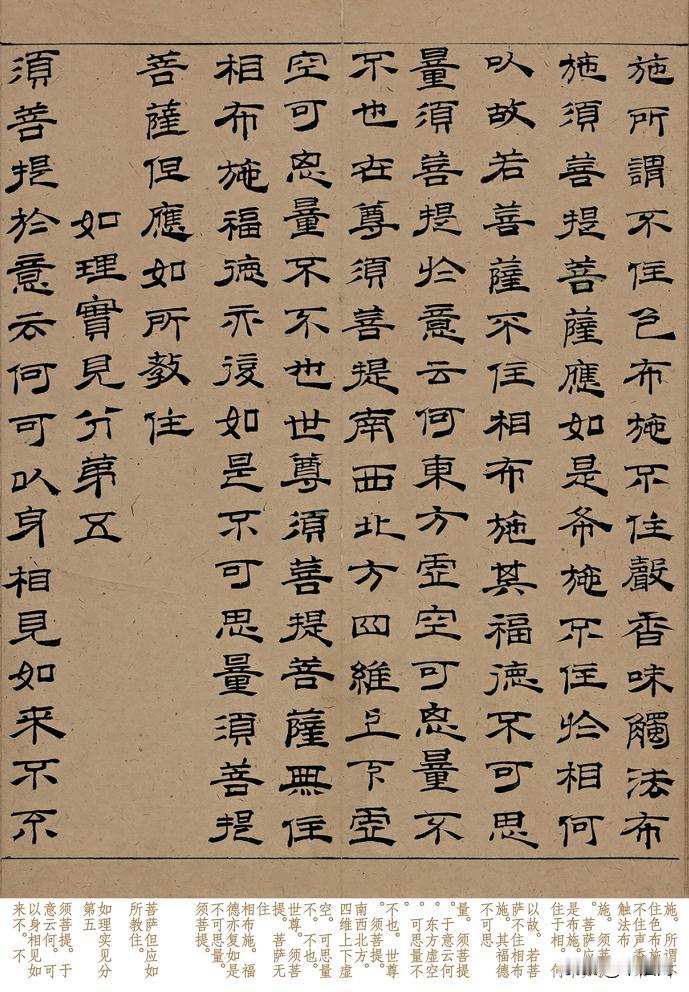 施所謂不住色布施不住聲香味觸法布
施須菩提菩薩應如是布施不住於相何
以故若菩薩不住相布施其福德不可思
量須菩提於意云何東方虛空可思量不
不也世尊須菩提南西北方四維上下虛
空可思量不不也世尊須菩提菩薩無住
相布施福德亦復如是不可思量須菩提
菩薩但應如所教住
如理實見分第五
須菩提於意云何可以身相見如来不不
施。所谓不
住色布施
不住声香味
触法布
施。须菩提
。菩萨应如
是布施。不
住于相。何
以故。若菩
萨不住相布
施。其福德
不可思
量。须菩提
。于意云何
。东方虚空
。可思量不
不也。世尊
。须菩提。
南西北方。
四维上下虚
空。可思量
不。不也。
世尊。须菩
提。菩萨无
住
相布施。福
德亦复如是
不可思量。
须菩提。
菩萨但应如
所教住。
如理实见分
第五
须菩提。于
意云何。可
以身相见如
来不。不